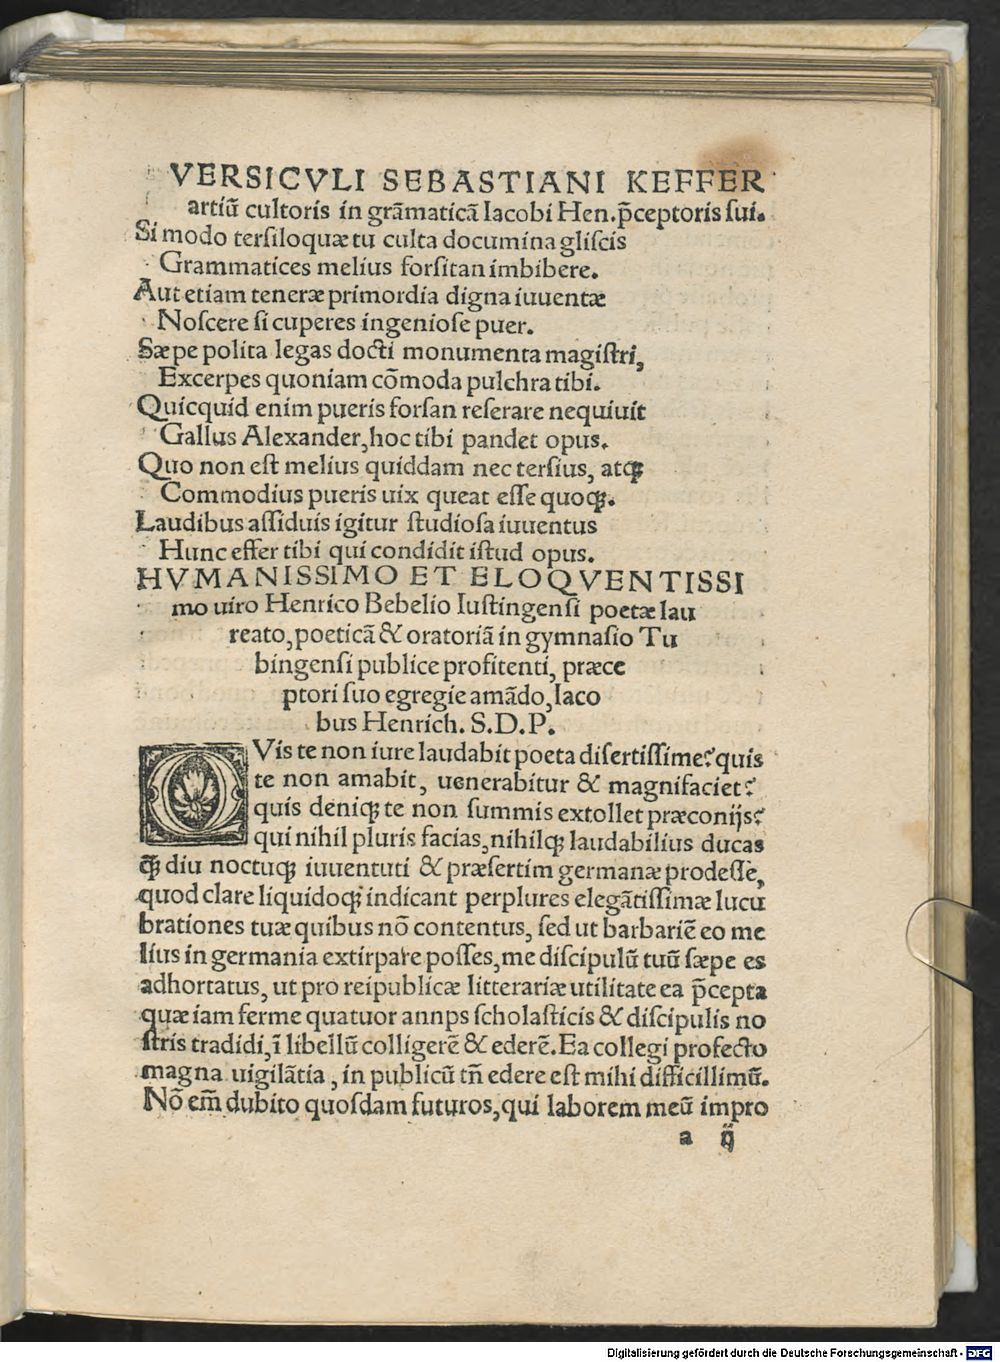 VERSICVLI SEBASTIANI KEFFER
artiū cultoris in grāmaticā Iacobi Hen. p̄ceptoris sui.
Si modo tersiloquæ tu culta documina gliscis
Grammatices melius forsitan imbibere.
Aut etiam teneræ primordia digna iuuentæ
Noscere si cuperes ingeniose puer.
Sæpe polita legas docti monumenta magistri,
Excerpes quoniam cōmoda pulchra tibi.
Quicquid enim pueris forsan reserare nequiuit
Gallus Alexander, hoc tibi pandet opus.
Quo non est melius quiddam nec tersius, atqꝫ
Commodius pueris uix queat esse quoqꝫ.
Laudibus assiduis igitur studiosa iuuentus
Hunc effer tibi qui condidit istud opus.
HVMANISSIMO ET ELOQVENTISSI
mo uiro Henrico Bebelio Iustingensi poetæ lau
reato, poeticā & oratoriā in gymnasio Tu
bingensi publice profitenti, præce
ptori suo egregie amādo, Iaco
bus Henrich. S.D.P.
QVis te non iure laudabit poeta disertissime? quis
te non amabit, uenerabitur & magnifaciet?
quis deniqꝫ te non summis extollet præconijs?
qui nihil pluris facias, nihilqꝫ laudabilius ducas
q̄ꝫ diu noctuqꝫ iuuentuti & præsertim germanæ prodesse,
quod clare liquidoqꝫ indicant perplures elegātissimæ lucu
brationes tuæ quibus nō contentus, sed ut barbariē eo me
lius in germania extirpare posses, me discipulū tuū sæpe es
adhortatus, ut pro reipublicæ litterariæ utilitate ea p̄cepta
quæ iam ferme quatuor annps scholasticis & discipulis no
stris tradidi, ī libellū colligerē & ederē. Ea collegi profecto
magna uigilātia, in publicū tn̄ edere est mihi difficillimū.
Nō em̄ dubito quosdam futuros, qui laborem meū impro
a ij
Digitalisierung gefördert durch die Deutsche Forschungsgemeinschaft - DFG